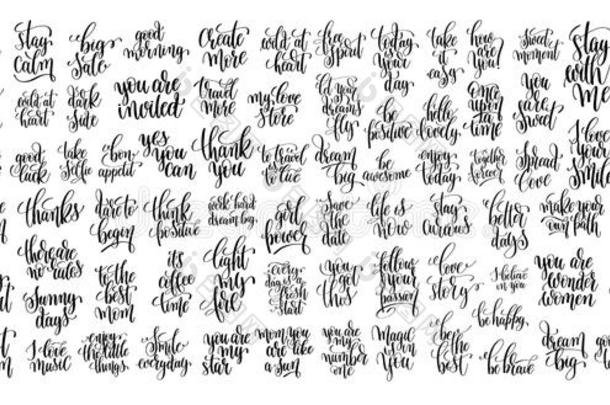 stay calm
big sale
good morning
create more
wild at heart
free spirit
today is your day
take it easy
how are you?
sweet moment
stay with me
wild at heart
dark side
you are invited
travel more
my love store
let your dreams fly
be positive
hello lovely
once upon a time
you are sweet
I love your smile
good luck
take selfie
bon appetit
yes you can
thank you
to travel is to live
dream big
be awesome
enjoy today
together forever
spread love
thanks
dare to begin
think positive
work hard dream big
girl power
save the date
life is now
stay curious
better days
make your own path
there are no rules
to the best mom
it's coffee time
light my fire
every day is a fresh start
you got this
follow your passion
love story
I believe in you
you are wonder women
sunny days
be happy
I love music
enjoy the little things
smile everyday
you are my star
mom you are like a sun
you are my number one
magic in you
be the best
be brave
dream big